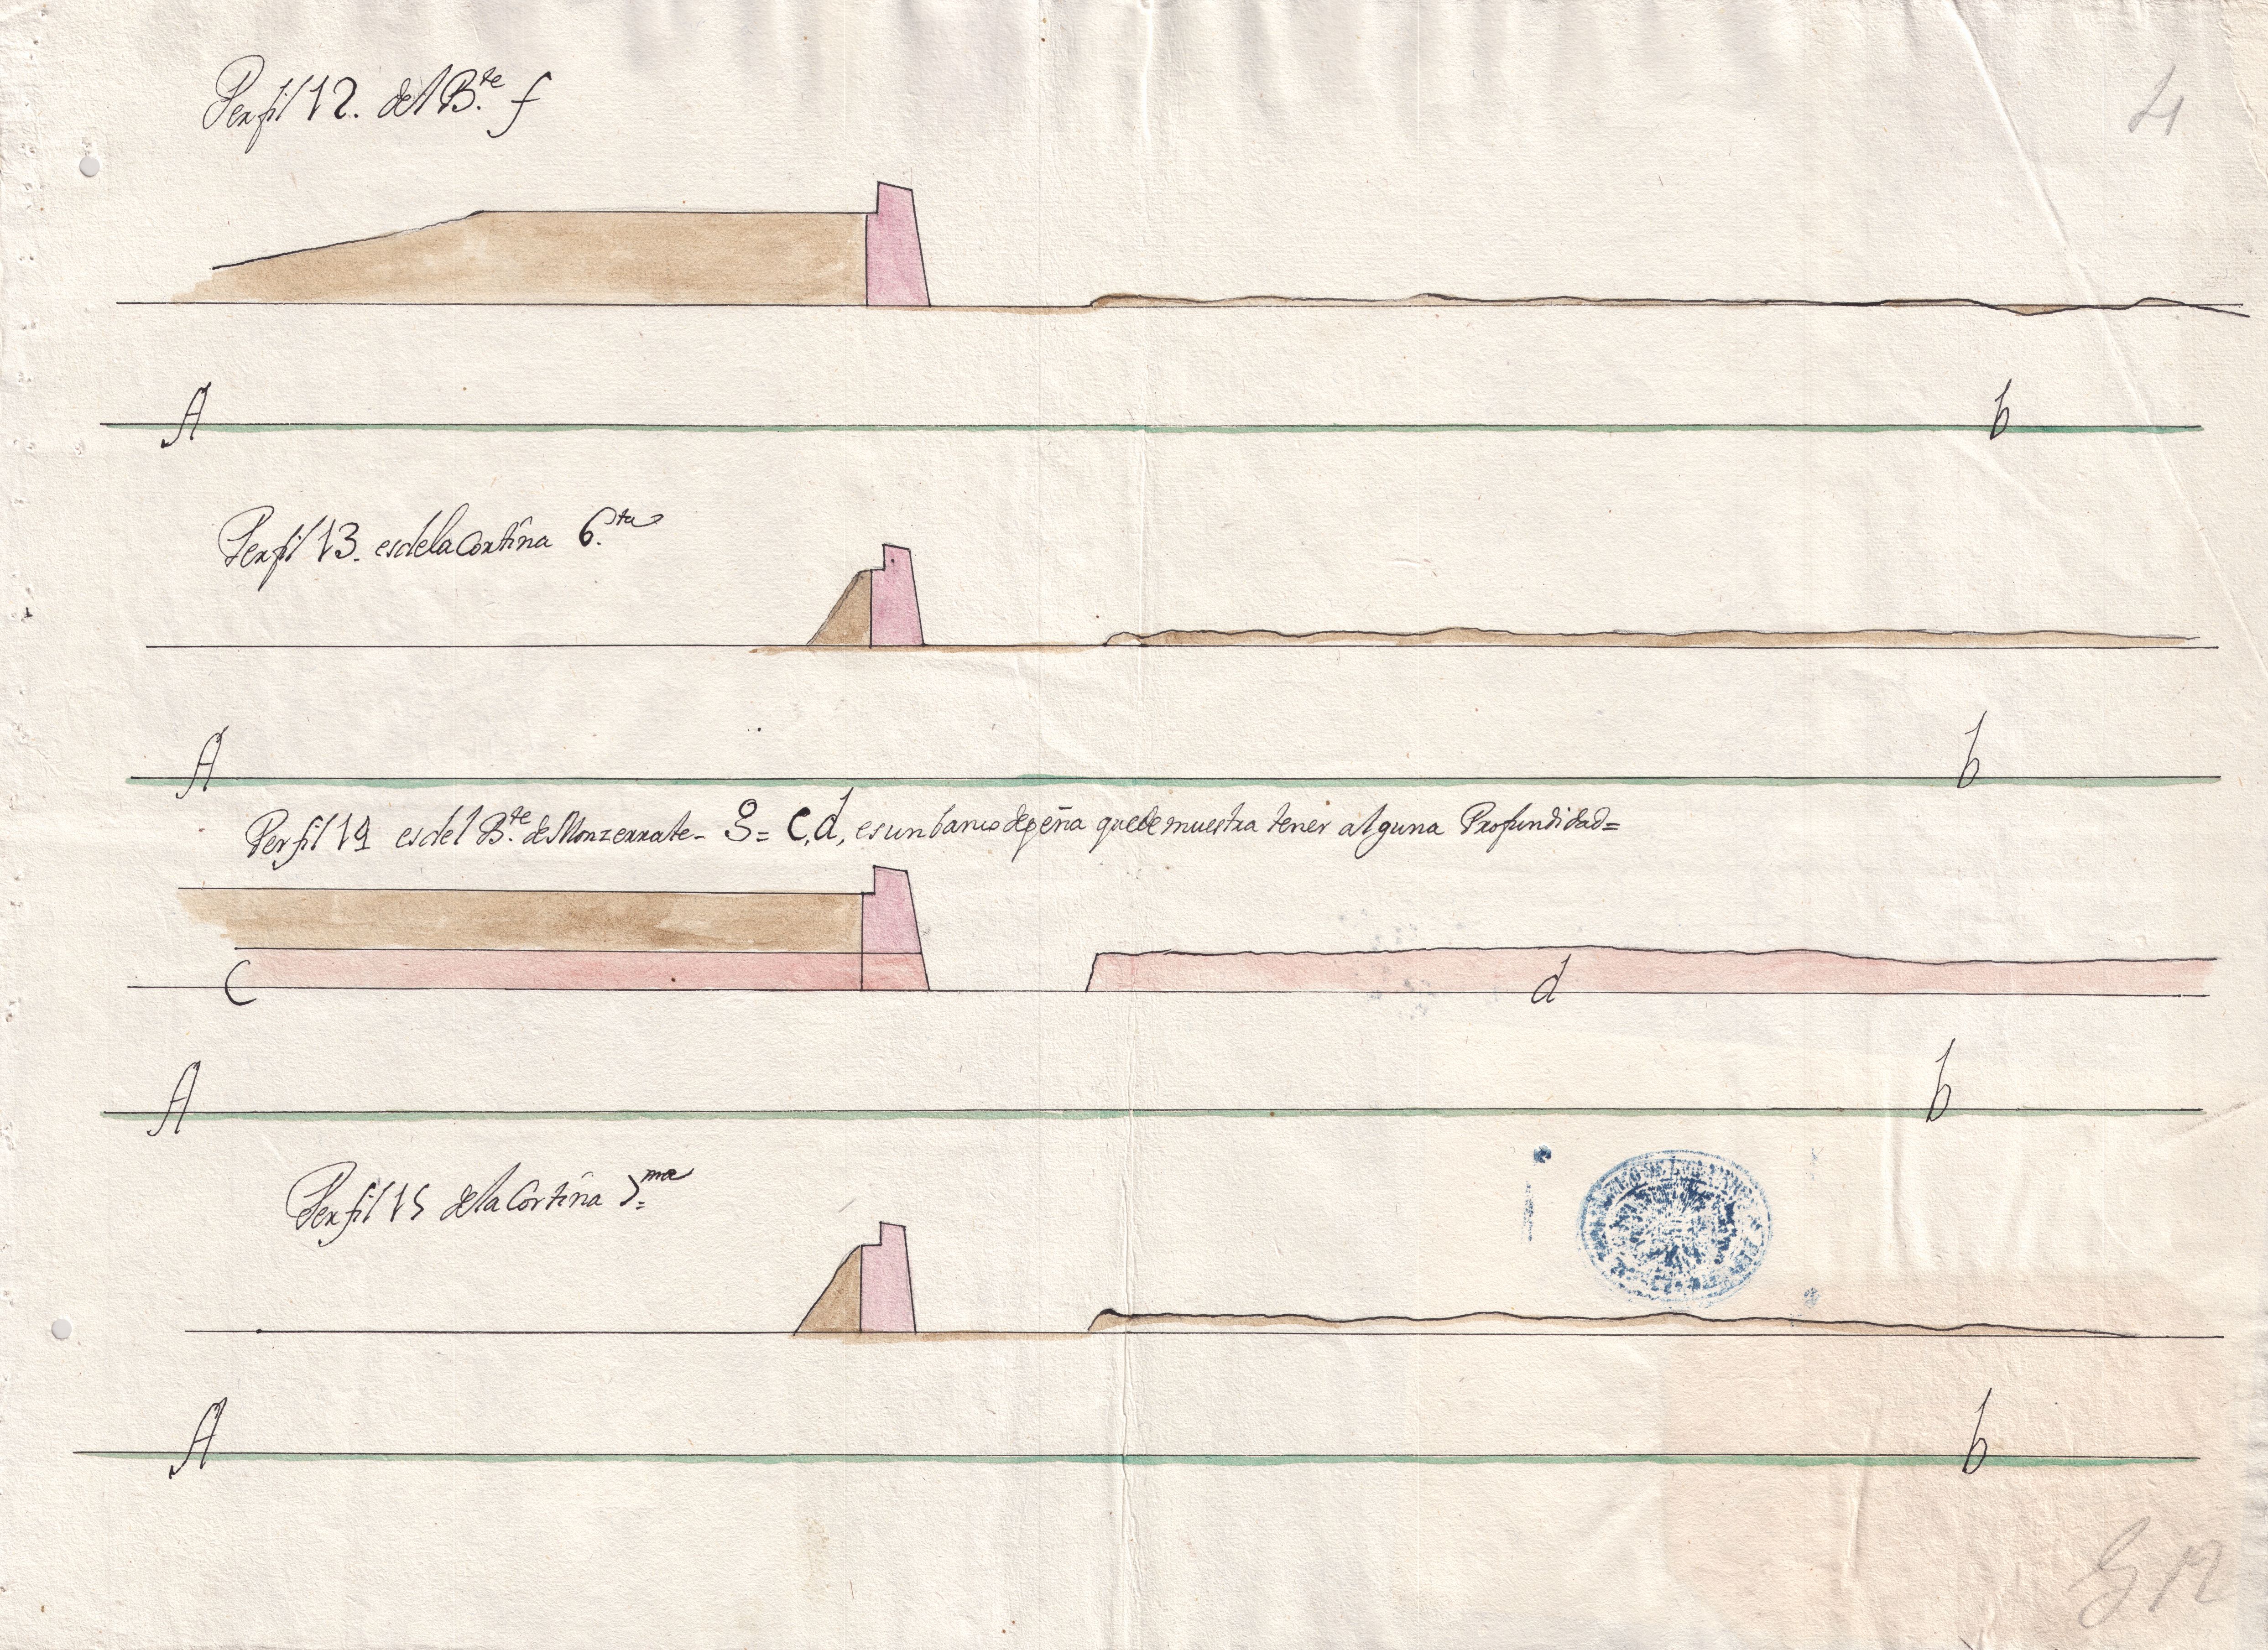 Perfil 12. del B.te f
4
A b
Perfil 13. es de la Cortina 6.ta
A b
Perfil 14 es del B.te de Monzerrate - g = C, d, es un banco de peña que demuestra tener alguna Profundidad =
C d
A b
Perfil 15 de la Cortina 7.ma
A b